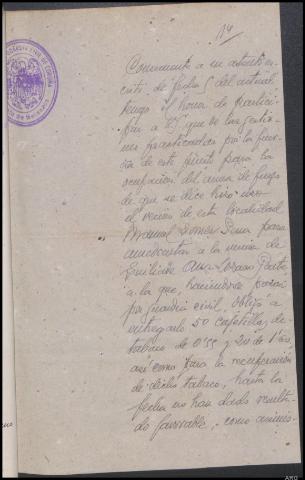 114
Conforme a su atento es-
crito de fecha 5 del actual
tengo el honor de partici-
par a VS que de las gestio-
nes practicadas por la fuer-
za de este puesto para la
ocupación del arma de fuego
de que se dice hizo uso
el vecino de esta localidad
Manuel Gomez para
amedrentar a la vecina de
Ana Lozano
a la que, haciendose pasar
por guardia civil, obligó a
entregarle 50 cajetillas de
tabaco de 0'55 y 20 de
así como para la recuperación
de dicho tabaco, hasta la
fecha no han dado resulta-
do favorable, como asimis-
ARQ